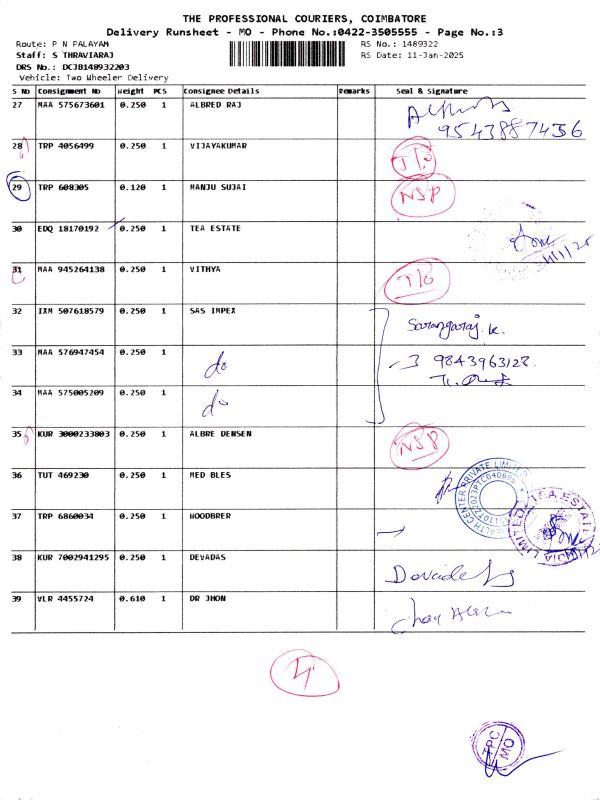 THE PROFESSIONAL COURIERS, COIMBATORE
Delivery Runsheet - MO - Phone No.:0422-3505555 - Page No.:3
Route: P N PALAYAM RS No.: 1489322
Staff: S THRAVIARAJ RS Date: 11-Jan-2025
DRS No.: DCJB148932203
Vehicle: Two Wheeler Delivery
S No Consignment No Weight PCS Consignee Details Remarks Seal & Signature
27 MAA 575673601 0.250 1 ALBRED RAJ
9543887436
28 TRP 4056499 0.250 1 VIJAYAKUMAR
29 TRP 608305 0.120 1 MANJU SUJAI NSP
30 EDQ 18170192 0.250 1 TEA ESTATE
31 MAA 945264138 0.250 1 VITHYA T/O
32 IXM 507618579 0.250 1 SAS IMPEX Sarangaraj.k.
33 MAA 576947454 0.250 1 do 3 9843963128.
34 MAA 575005209 0.250 1 do
35 KUR 3000233803 0.250 1 ALBRE DENSEN NSP
36 TUT 469230 0.250 1 MED BLES
37 TRP 6860034 0.250 1 WOODBRER
38 KUR 7002941295 0.250 1 DEVADAS
39 VLR 4455724 0.610 1 DR JHON
4
TPC
MO